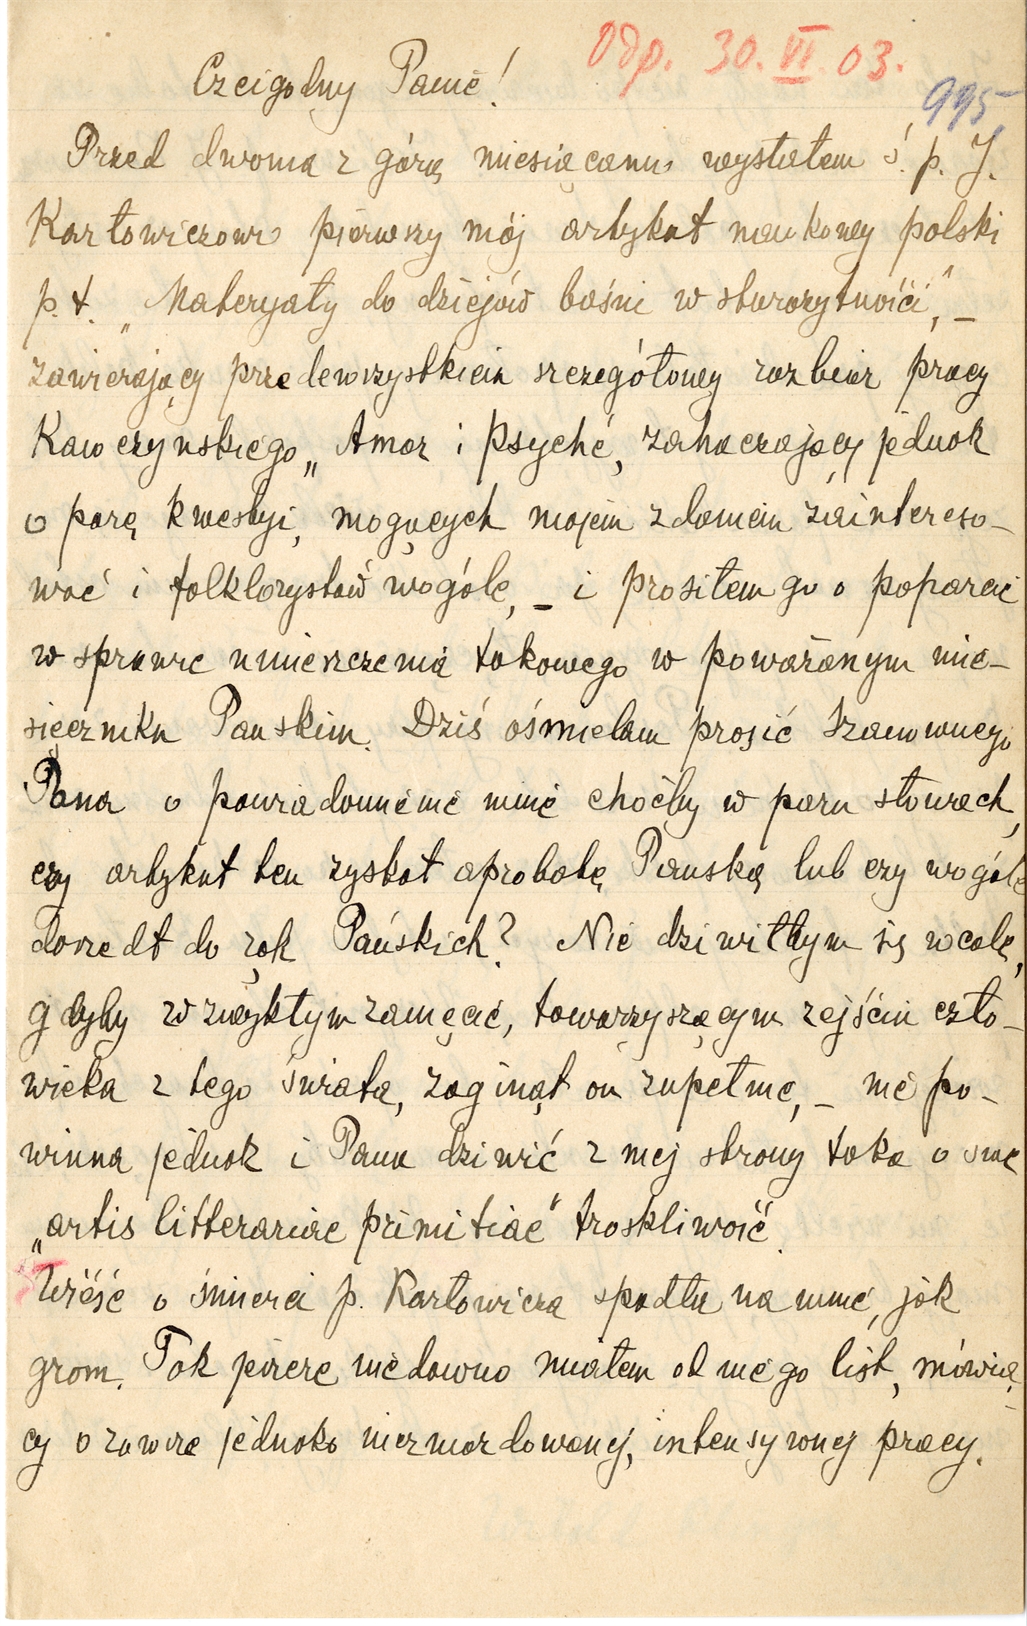 Odp. 30. VI. 03.
995
Czcigodny Panie!
Przed dwoma z górą miesiącami wysłałem ś. p. J.
Karłowiczowi pierwszy mój artykuł naukowy polski
p. t. „Materyały do dziejów baśni w starożytności", –
zawierający przedewszystkiem szczegółowy rozbiór pracy
Kawczyńskiego „Amor i Psyche, zahaczający jednak
o parę kwestyi, mogących mojem zdaniem zaintereso–
wać i folklorystów wogóle, – i prosiłem go o poparcie
w sprawie umieszczenia takowego w poważanym mie–
sięczniku Pańskim. Dziś ośmielam prosić Szanownego
Pana o powiadomienie mnie choćby w paru słowach,
czy artykuł ten zyskał aprobatę Pańską lub czy wogóle
doszedł do rąk Pańskich? Nie dziwiłbym się wcale,
gdyby w zwykłym zamęcie, towarzyszącym zejściu czło–
wieka z tego świata, zaginął on zupełnie, – nie po–
winna jednak i Pana dziwić z mej strony taka o swe
„artis litterariae primitiae" troskliwość.
Wieść o śmierci p. Karłowicza spadła na mnie, jak
grom. Tak jeszcze niedawno miałem od niego list, mówią–
cy o zawsze jednako niezmordowanej, intensywnej pracy.